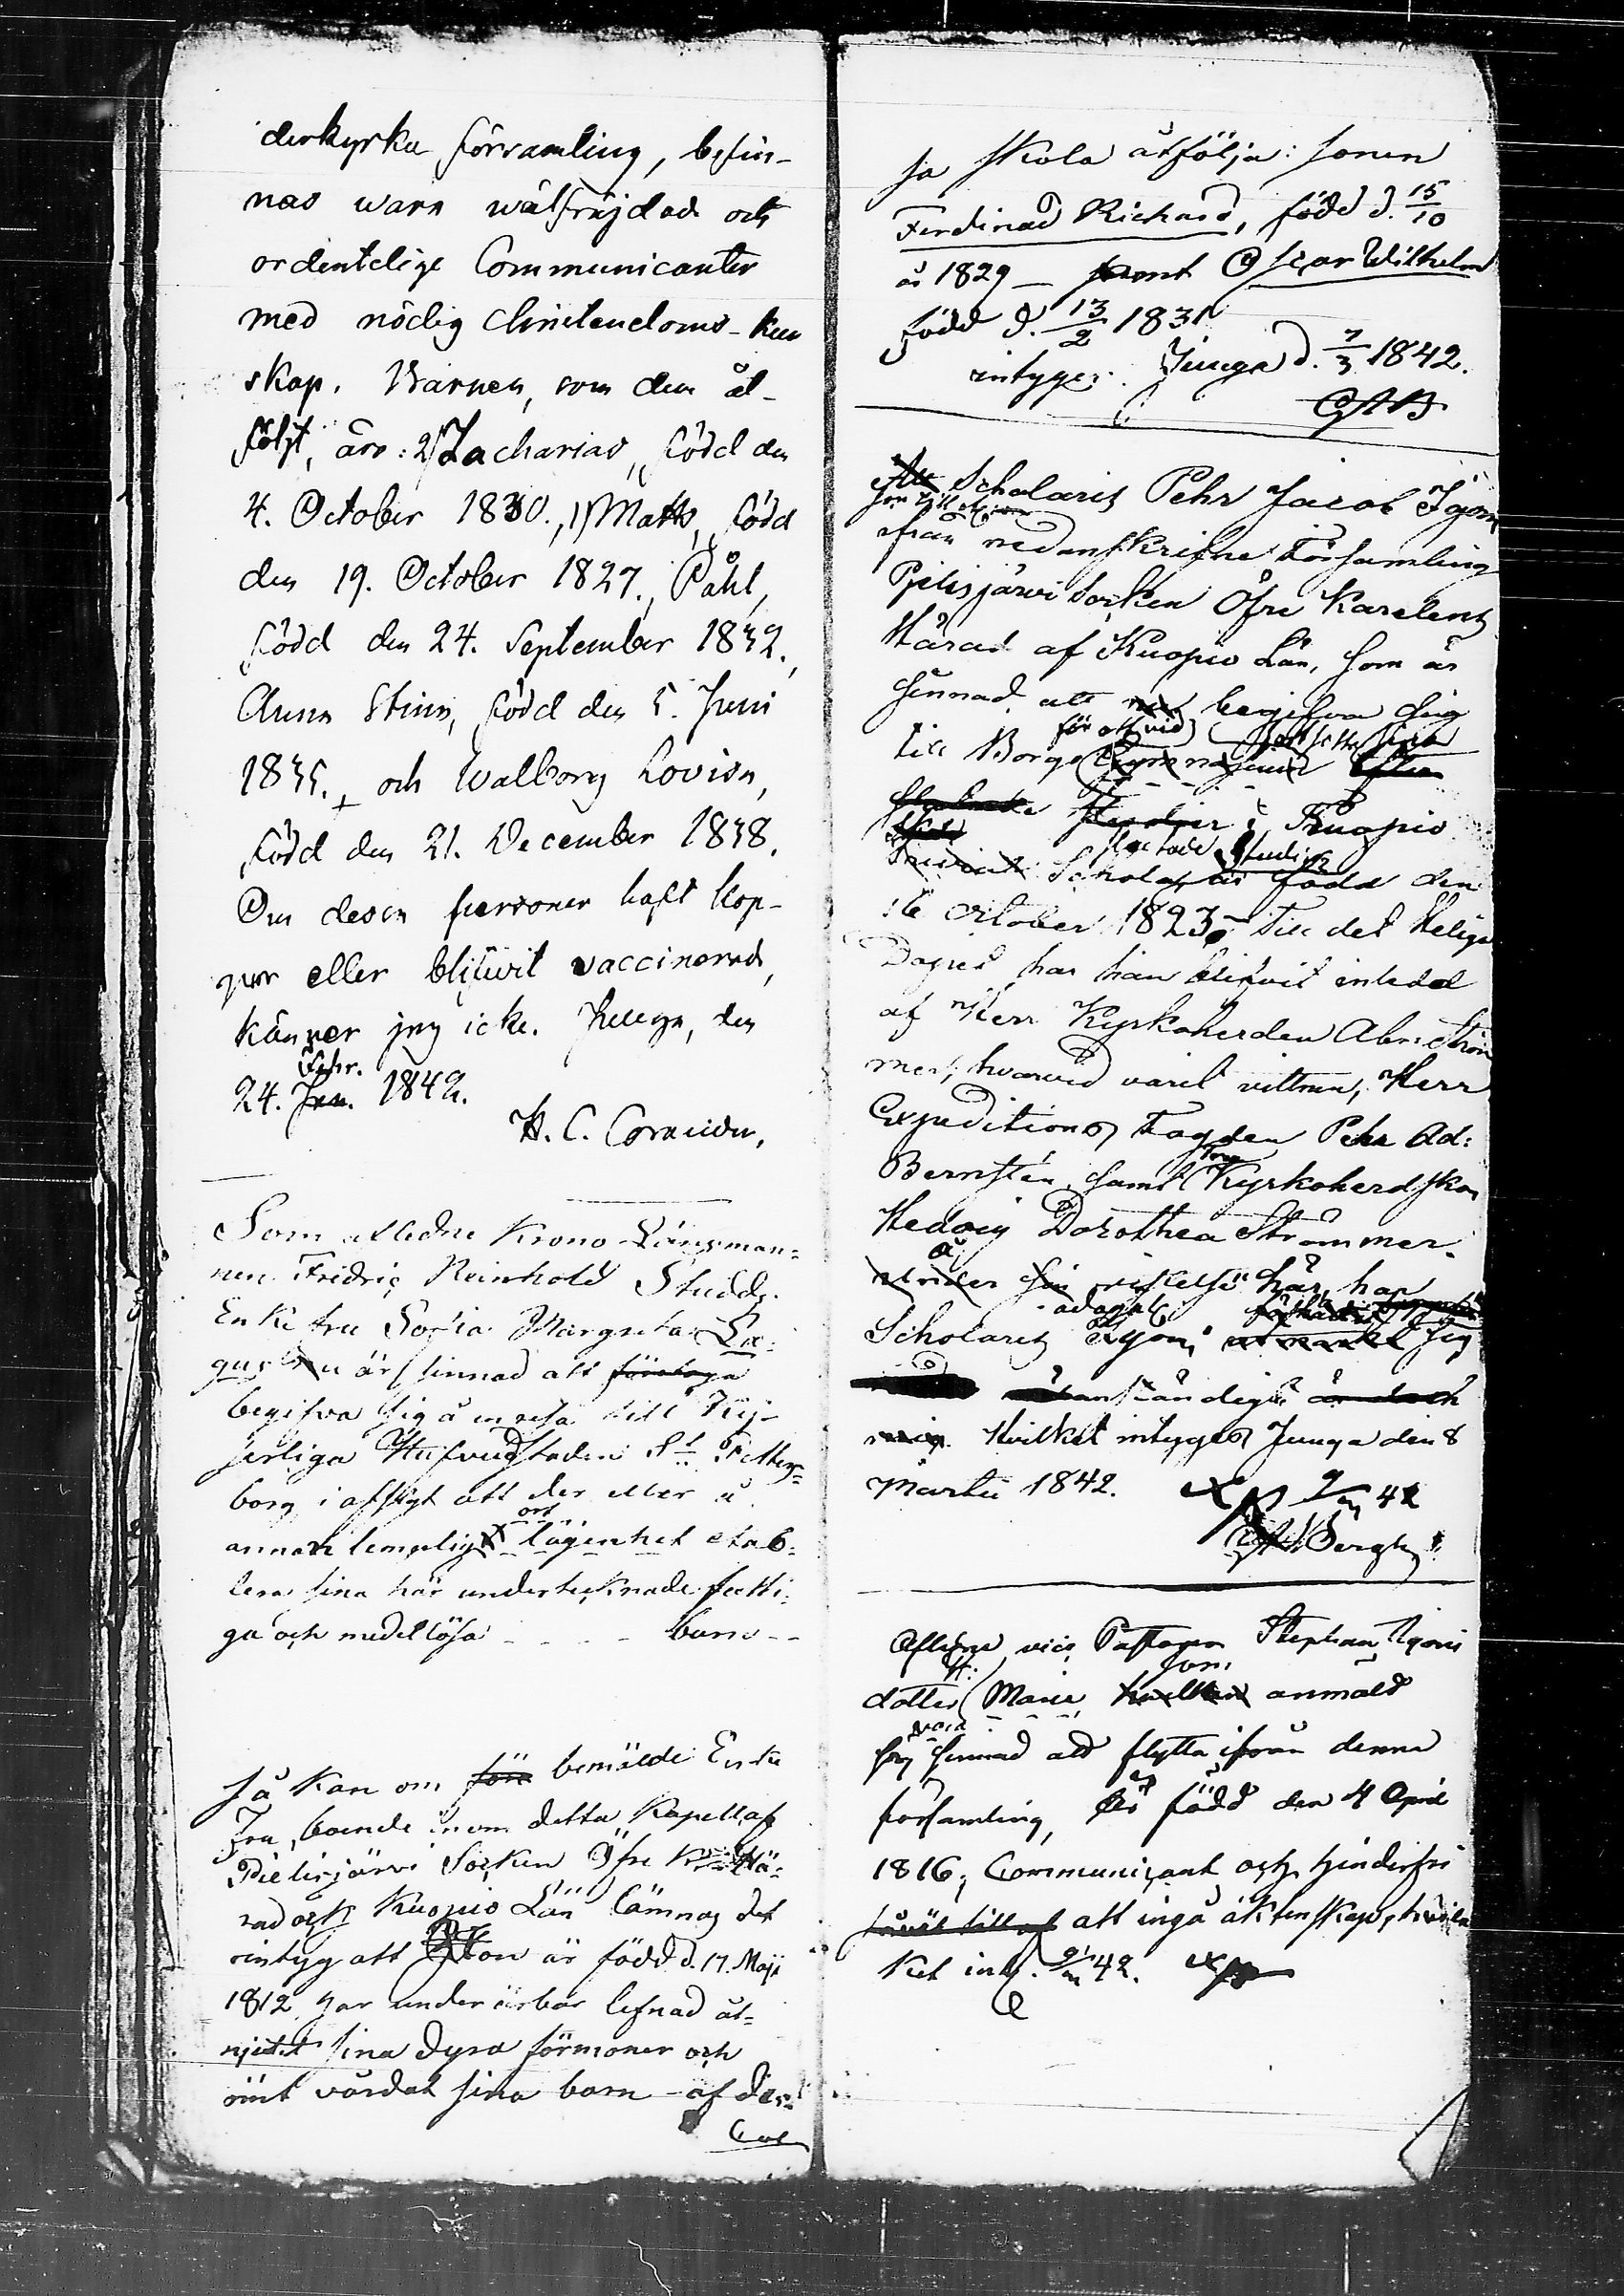 derkyrka församling, befin-
nas vara wälfrejdade och
ordentelige Communicanter
med nödig christendoms-kun
skap. Barnen, som dem åt-
följt, äro: 2) Zacharias, född den
4. October 1830., 1) Matts, född
den 19. October 1827., Påhl,
född den 24. September 1832.,
Anna Stina, född den 5. Juni
1835., och Walborg Lovisa,
född den 21. December 1838.
Om dessa personer haft kop-
por eller blifwit vaccinerad,
känner jag icke. den
Febr.
24. Jan. 1842.
H. C.
Som afledne Krono-Länsman-
nen Fridric Reinhold Studds
Enke fru Sofia Margreta
är sinnad att företaga
begifva sig å en resa till Kej-
serliga Hufvudstaden St Petters-
borg i afsigt att der eller å
ort
annan lemplig lägenhet etab-
lera sina här undertecknade fatti-
ga och medellösa - - - - barn - -
så kan om före bemälde Enke
Fru, boende inom detta Kapell af
Pielisjärvi Socken Öfre Hä-
rad och Kuopio Län lämnas det
intyg att Hon är född d. 17. Maji
1812, har under ärbar lefnad åt-
njutit sina dyra förmoner och
ömt vårdat sina barn - af des-
sa skola åtfölja: sonen
Ferdinad Richard, född d. 15/10
år 1829 - samt Oscar Wilhelm
född d. 13/2 1831
intygar. Juuga d. 7/3 1842.
Att Scholaris Pehr Jacob Tyôni
från nedanskrifne Församling
Pielisjärvi Socken Öfre Karelens
Härad af Kuopio Län, som är
sinnad att begifva sig
för att vid fortsätta sina
till Borgo Gymnasium
Studier i Kuopio
Studier
Trivial Schola, är född den
16 October 1823. Till det Heliga
Dopet har han blifvit inledd
af Herr Kyrkoherden Abr: Ström
mer, hvarvid varit vittnen, Herr
Expeditions Fogden Pehr Ad:
Bernstén, samt Kyrkoherdskan
Hedvig Dorothea Strömmer.
vistelse här, har
Scholaris Tyoni sig
anständigt
Hvilket intygas Juuga den 8
Martii 1842.
Bergh
Aflidne vice Pastoren Stephan Tyoni
dotter Maria anmäld
vara
sig sinnad att flytta ifrån denna
församling, är född den 4 April
1816, Communicant och hinderfri
att ingå äktenskap, hvil-
ket inty. 42.